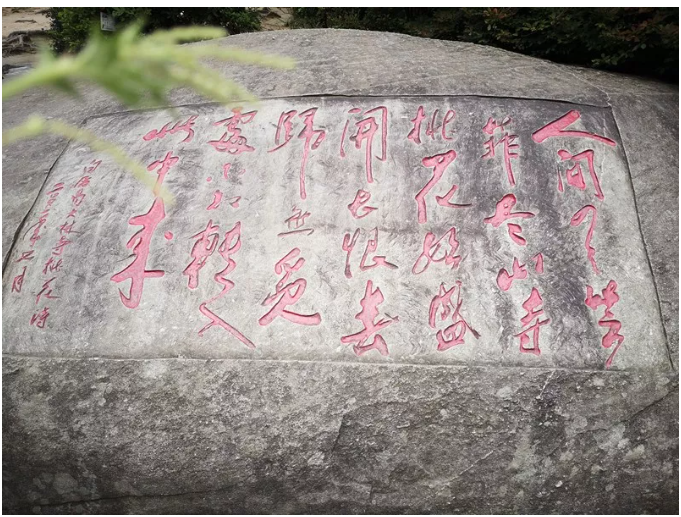 人间四月芳
菲尽山寺
桃花始盛
開长恨春
歸無覓
處不知轉入
此中来
白居易大林寺桃花诗
年七月